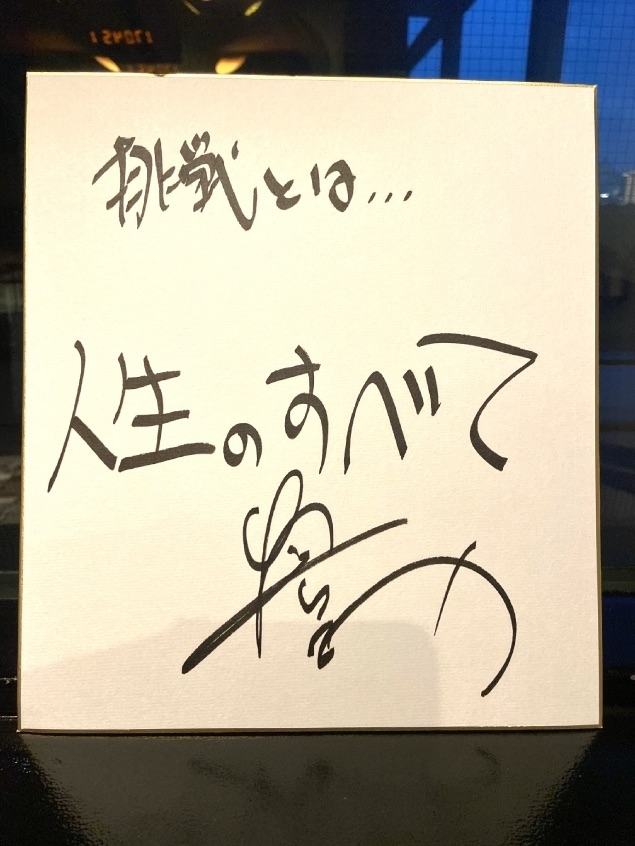 挑戦とは...
人生のすべて